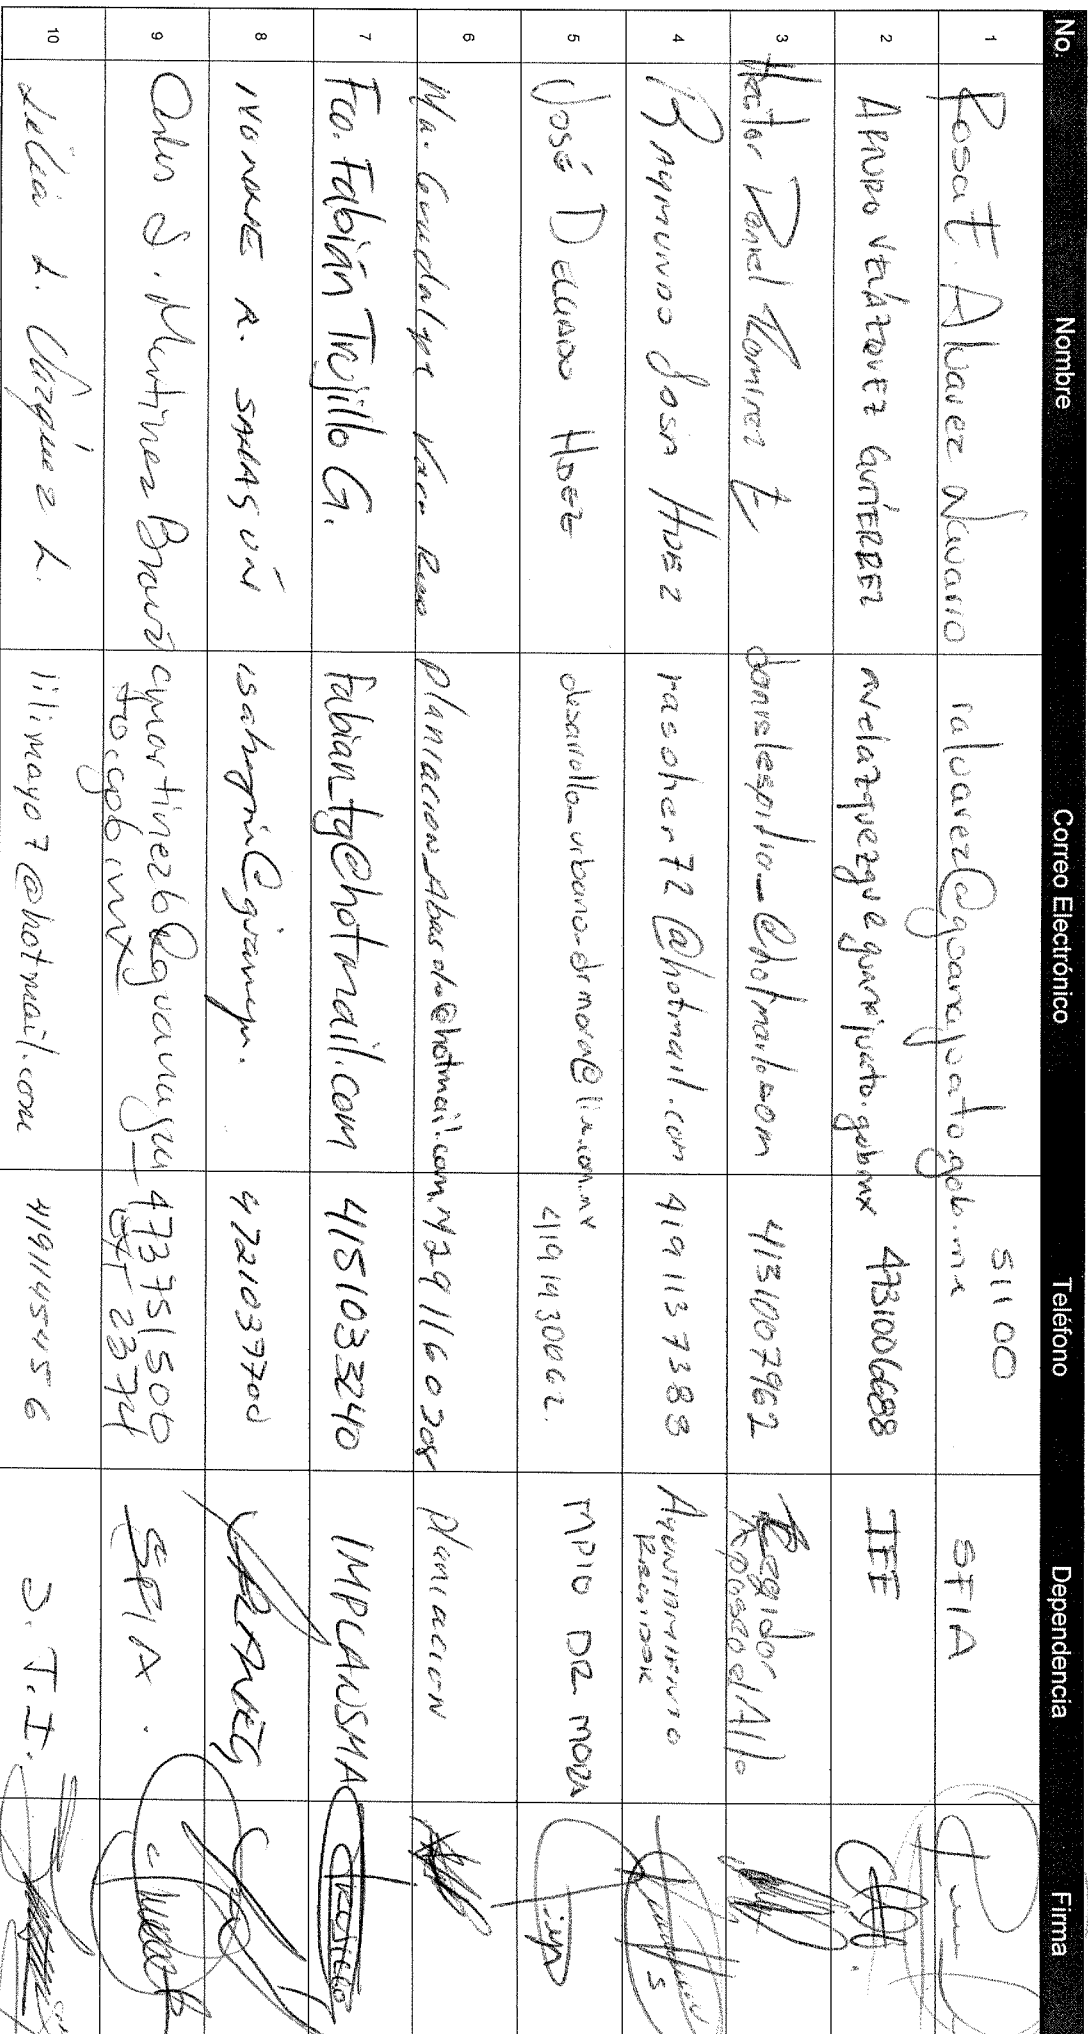 No. Nombre Correo Electrónico Teléfono Dependencia Firma
1 Rosa E. Alvarez Navarro ralvarez@guanajuato.gob.mx 51100 SFIA
2 ARTURO VELÁZQUEZ GUTIÉRREZ avelazquezgu@guanajuato.gob.mx 4731006688 IEE
3 Hector Daniel Ramirez E. danielespitio_@hotmail.com 4131007962 Regidor
Apaseo el Alto
4 RAYMUNDO SOSA HDEZ rasoher72@hotmail.com 4191137388 AYUNTAMIENTO
REGIDOR
5 JOSÉ DELGADO HDEZ desarrollo_urbano-drmora@live.com.mx 4191930062. MPIO DR MORA
6 Ma. Guadalupe planiacion_Abasolo@hotmail.com planiacion
7 Fco. Fabián Trujillo G. fabian_tg@hotmail.com 4151033240 IMPLANSMA Trujillo
8 IVONNE A. SAHAGÚN 4721037700
9 S. Martinez Bravo cmartinezb@guanajua_
to.gob.mx 473751500
EXT 2374 SFIA.
10 Lilia L. Vázquez L. lilimayo7@hotmail.com 4191145456 D.T.I.